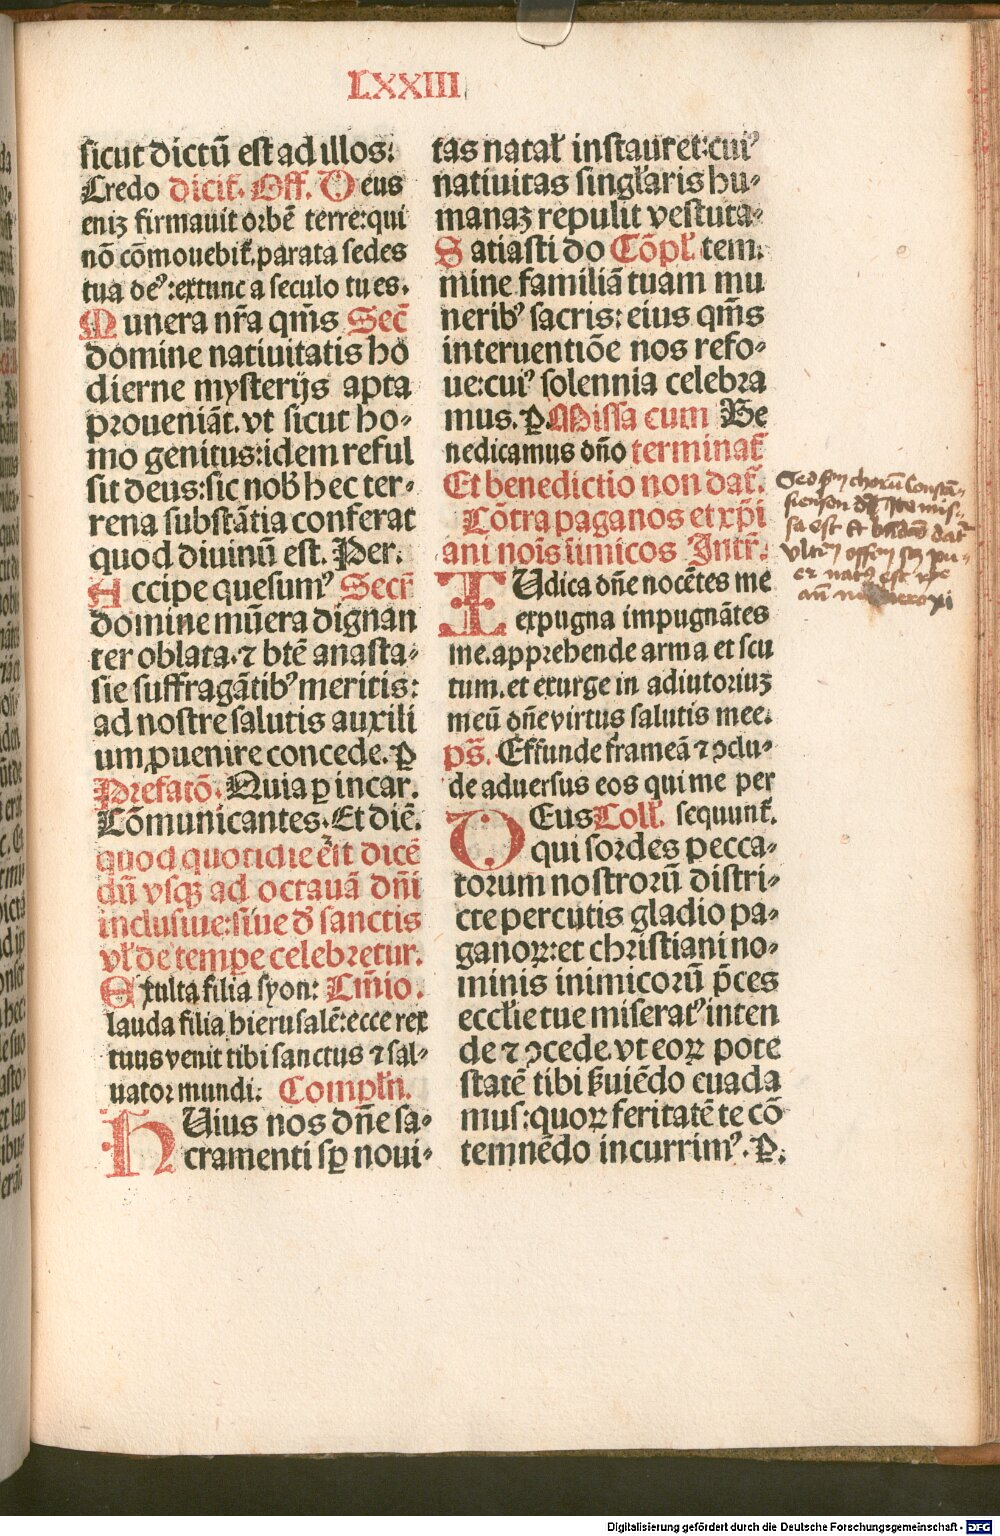 LXXIII
sicut dictū est ad illos:
Credo dicit̄. Off. Deus
eniꝫ firmauit orbē terre:qui
nō cōmouebit̄.parata sedes
tua deꝰ:extunc a seculo tu es.
Munera nr̄a qm̄s Secr̄
domine natiuitatis ho
dierne mysterijs apta
proueniāt.vt sicut ho⸗
mo genitus:idem reful
sit deus:sic nob̄ hec ter⸗
rena substātia conferat
quod diuinū est. Per.
Accipe quesumꝰ Secr̄
domine mūera dignan
ter oblata.⁊ btē anasta⸗
sie suffragātibꝰ meritis:
ad nostre salutis auxili
um ꝓuenire concede. P
Prefatō. Quia ꝑ incar.
Cōmunicantes. Et diē.
quod quotidie erit dicē
dū vsqꝫ ad octauā dn̄i
inclusiue:siue de sanctis
vł de tempe celebretur.
Exulta filia syon: Cm̄io.
lauda filia hierusalē:ecce rex
tuus venit tibi sanctus ⁊ sal⸗
uator mundi. Compłn.
HUius nos dn̄e sa⸗
cramenti sꝑ noui⸗
tas natał instauret:cuiꝰ
natiuitas singłaris hu⸗
manaꝫ repulit vestuta⸗
Satiasti do Cōpł. tem.
mine familiā tuam mu
neribꝰ sacris: eius qm̄s
interuentiōe nos refo⸗
ue:cuiꝰ solennia celebra
mus. P. Missa cum Be
nedicamus dn̄o terminat̄
Et benedictio non dat̄.
Cōtra paganos et xp̄i
ani nois inimicos Intr̄.
IUdica dn̄e nocētes me
expugna impugnātes
me.apprehende arma et scu
tum.et exurge in adiutoriuꝫ
meū dn̄e virtus salutis mee.
ps̄. Effunde frameā ⁊ ꝯclu⸗
de aduersus eos qui me per
DEus Coll. sequunt̄.
qui sordes pecca⸗
torum nostrorū distri⸗
cte percutis gladio pa⸗
ganoꝝ:et christiani no⸗
minis inimicorū p̄ces
eccłie tue miseratꝰ inten
de ⁊ ꝯcede.vt eoꝝ pote
statē tibi ẜuiēdo euada
mus:quoꝝ feritatē te cō
temnēdo incurrimꝰ. P.
Sed chorū Constā⸗
sa est dat̄
Digitalisierung gefördert durch die Deutsche Forschungsgemeinschaft - DFG